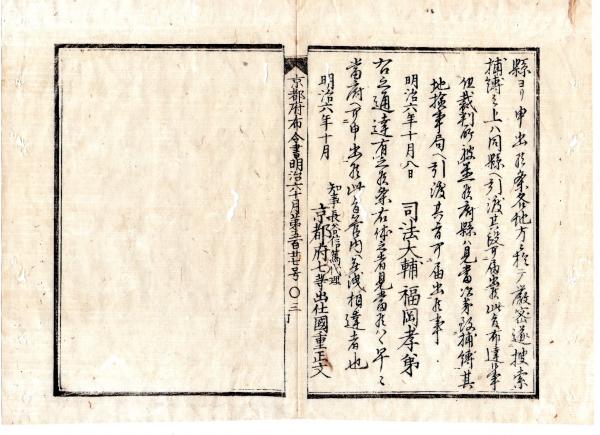 縣ヨリ申出候条各地方ニ於テ厳密遂捜索
捕縛之上ハ同縣ヘ引渡其段可届出此旨布達候事
但裁判所被置候府縣ハ見當次第致捕縛其
地検事局ヘ引渡其旨可届出候事
明治六年十月八日 司法大輔福岡孝弟
右之通達有之候条右体之者見當候ハヽ早々
當府ヘ可申出候此旨管内無洩相達者也
明治六年十月 知事長谷信篤代理
京都府七等出仕國重正文
京都府布令書明治六十月第五百廿七号〇三丁